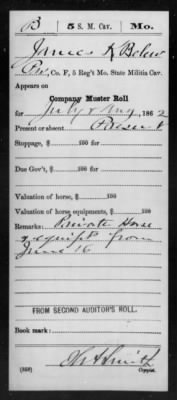 B | 5 S. M. Cav. | Mo.
James K Below
Pvt, Co. F, 5 Reg't Mo. State Militia Cav.
Appears on
Company Muster Roll
for July & Aug, 1862
Present or absent Present
Stoppage, $ 100 for
Due Gov't, $ 100
Valuation of horse, $ 100
Valuation of horse equipments, $ 100
Remarks: Private Horse
& equipts from
June 16
FROM SECOND AUDITOR'S ROLL.
Book mark:
Smith
(359) Copyist.